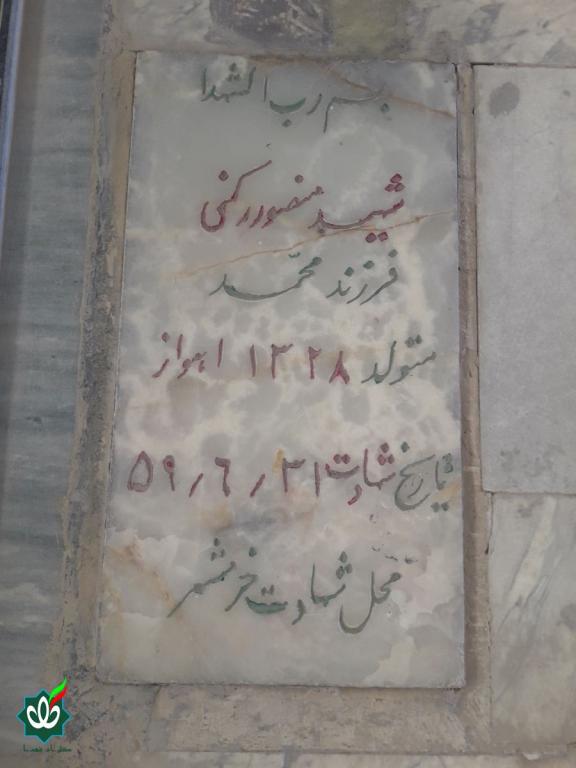 بسم رب الشهدا
شهید منصور رکنی
فرزند محمّد
متولد ۱۳۲۸ اهواز
تاریخ شهادت ۳۱/۶/۵۹
محل شهادت خرمشهر